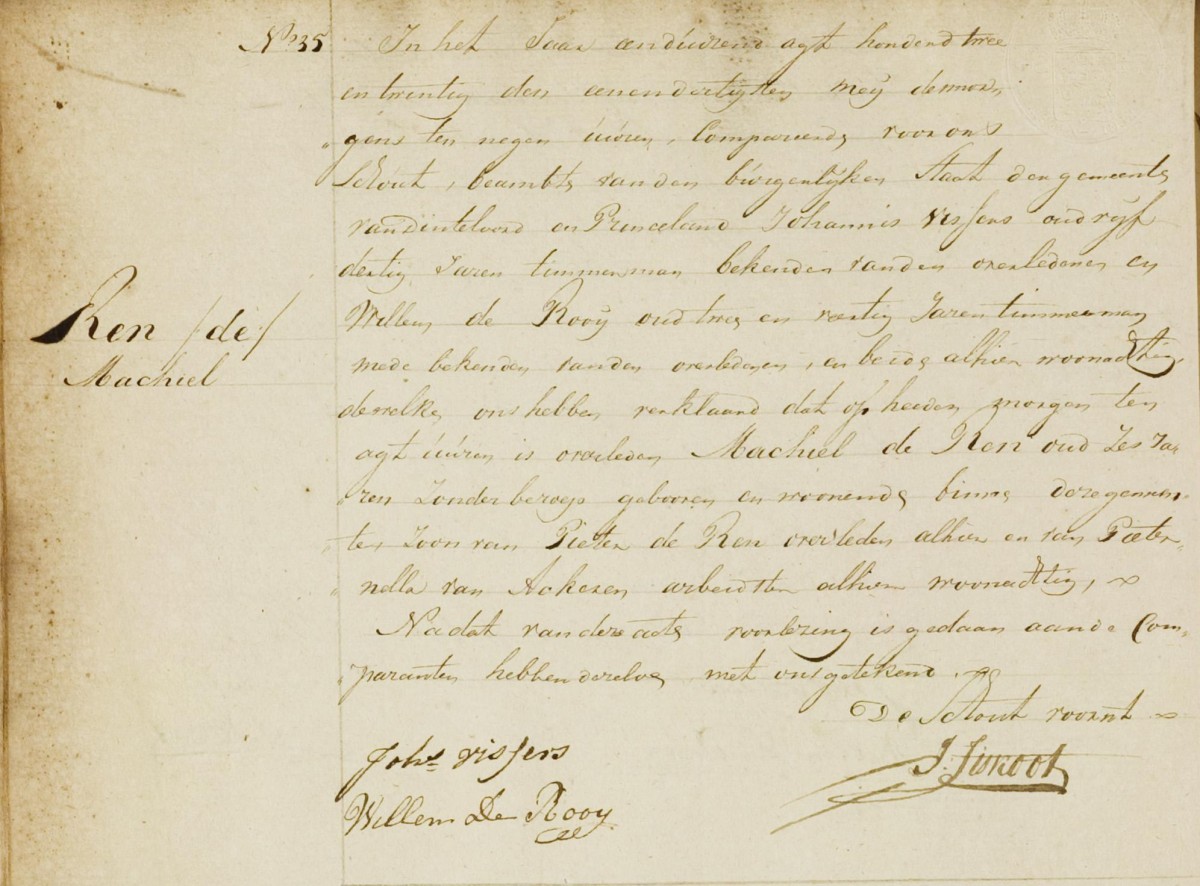 No 35
In het Jaar eenduizend agt hondend twee
en twintig den eenendertigsten meÿ demor,
gens ten negen úúren, Compareerde voor ons
Schout, beambte van den búrgenlyken Staat den gemeente
van dinteloord en Princeland Johannis Vissers oud vÿf
dertig Jaren timmerman bekenden van den overledenen en
Willem de Rooÿ oud twee en veertig Jaren timmerman
mede bekenden van den overledenen, en beide alhier woonachtig,
dewelke ons hebben verklaard dat op heeden smorgens ten
agt úúren is overleden Machiel de Ren oud Zes Ja,
ren Zonder beroep gebooren en woonende binne deze gemeen,
te, Zoon van Pieter de Ren overleden alhier en van Pieter,
nella van Ackeren arbeidster alhier woonachtig,
Na dat van deze acte voorlezing is gedaan aan de Com,
paranten hebben dezelve met ons getekend.
De Schout voornt
Ren /de/
Machiel
Johs Vissers
J. Liskoot
Willem De Rooy